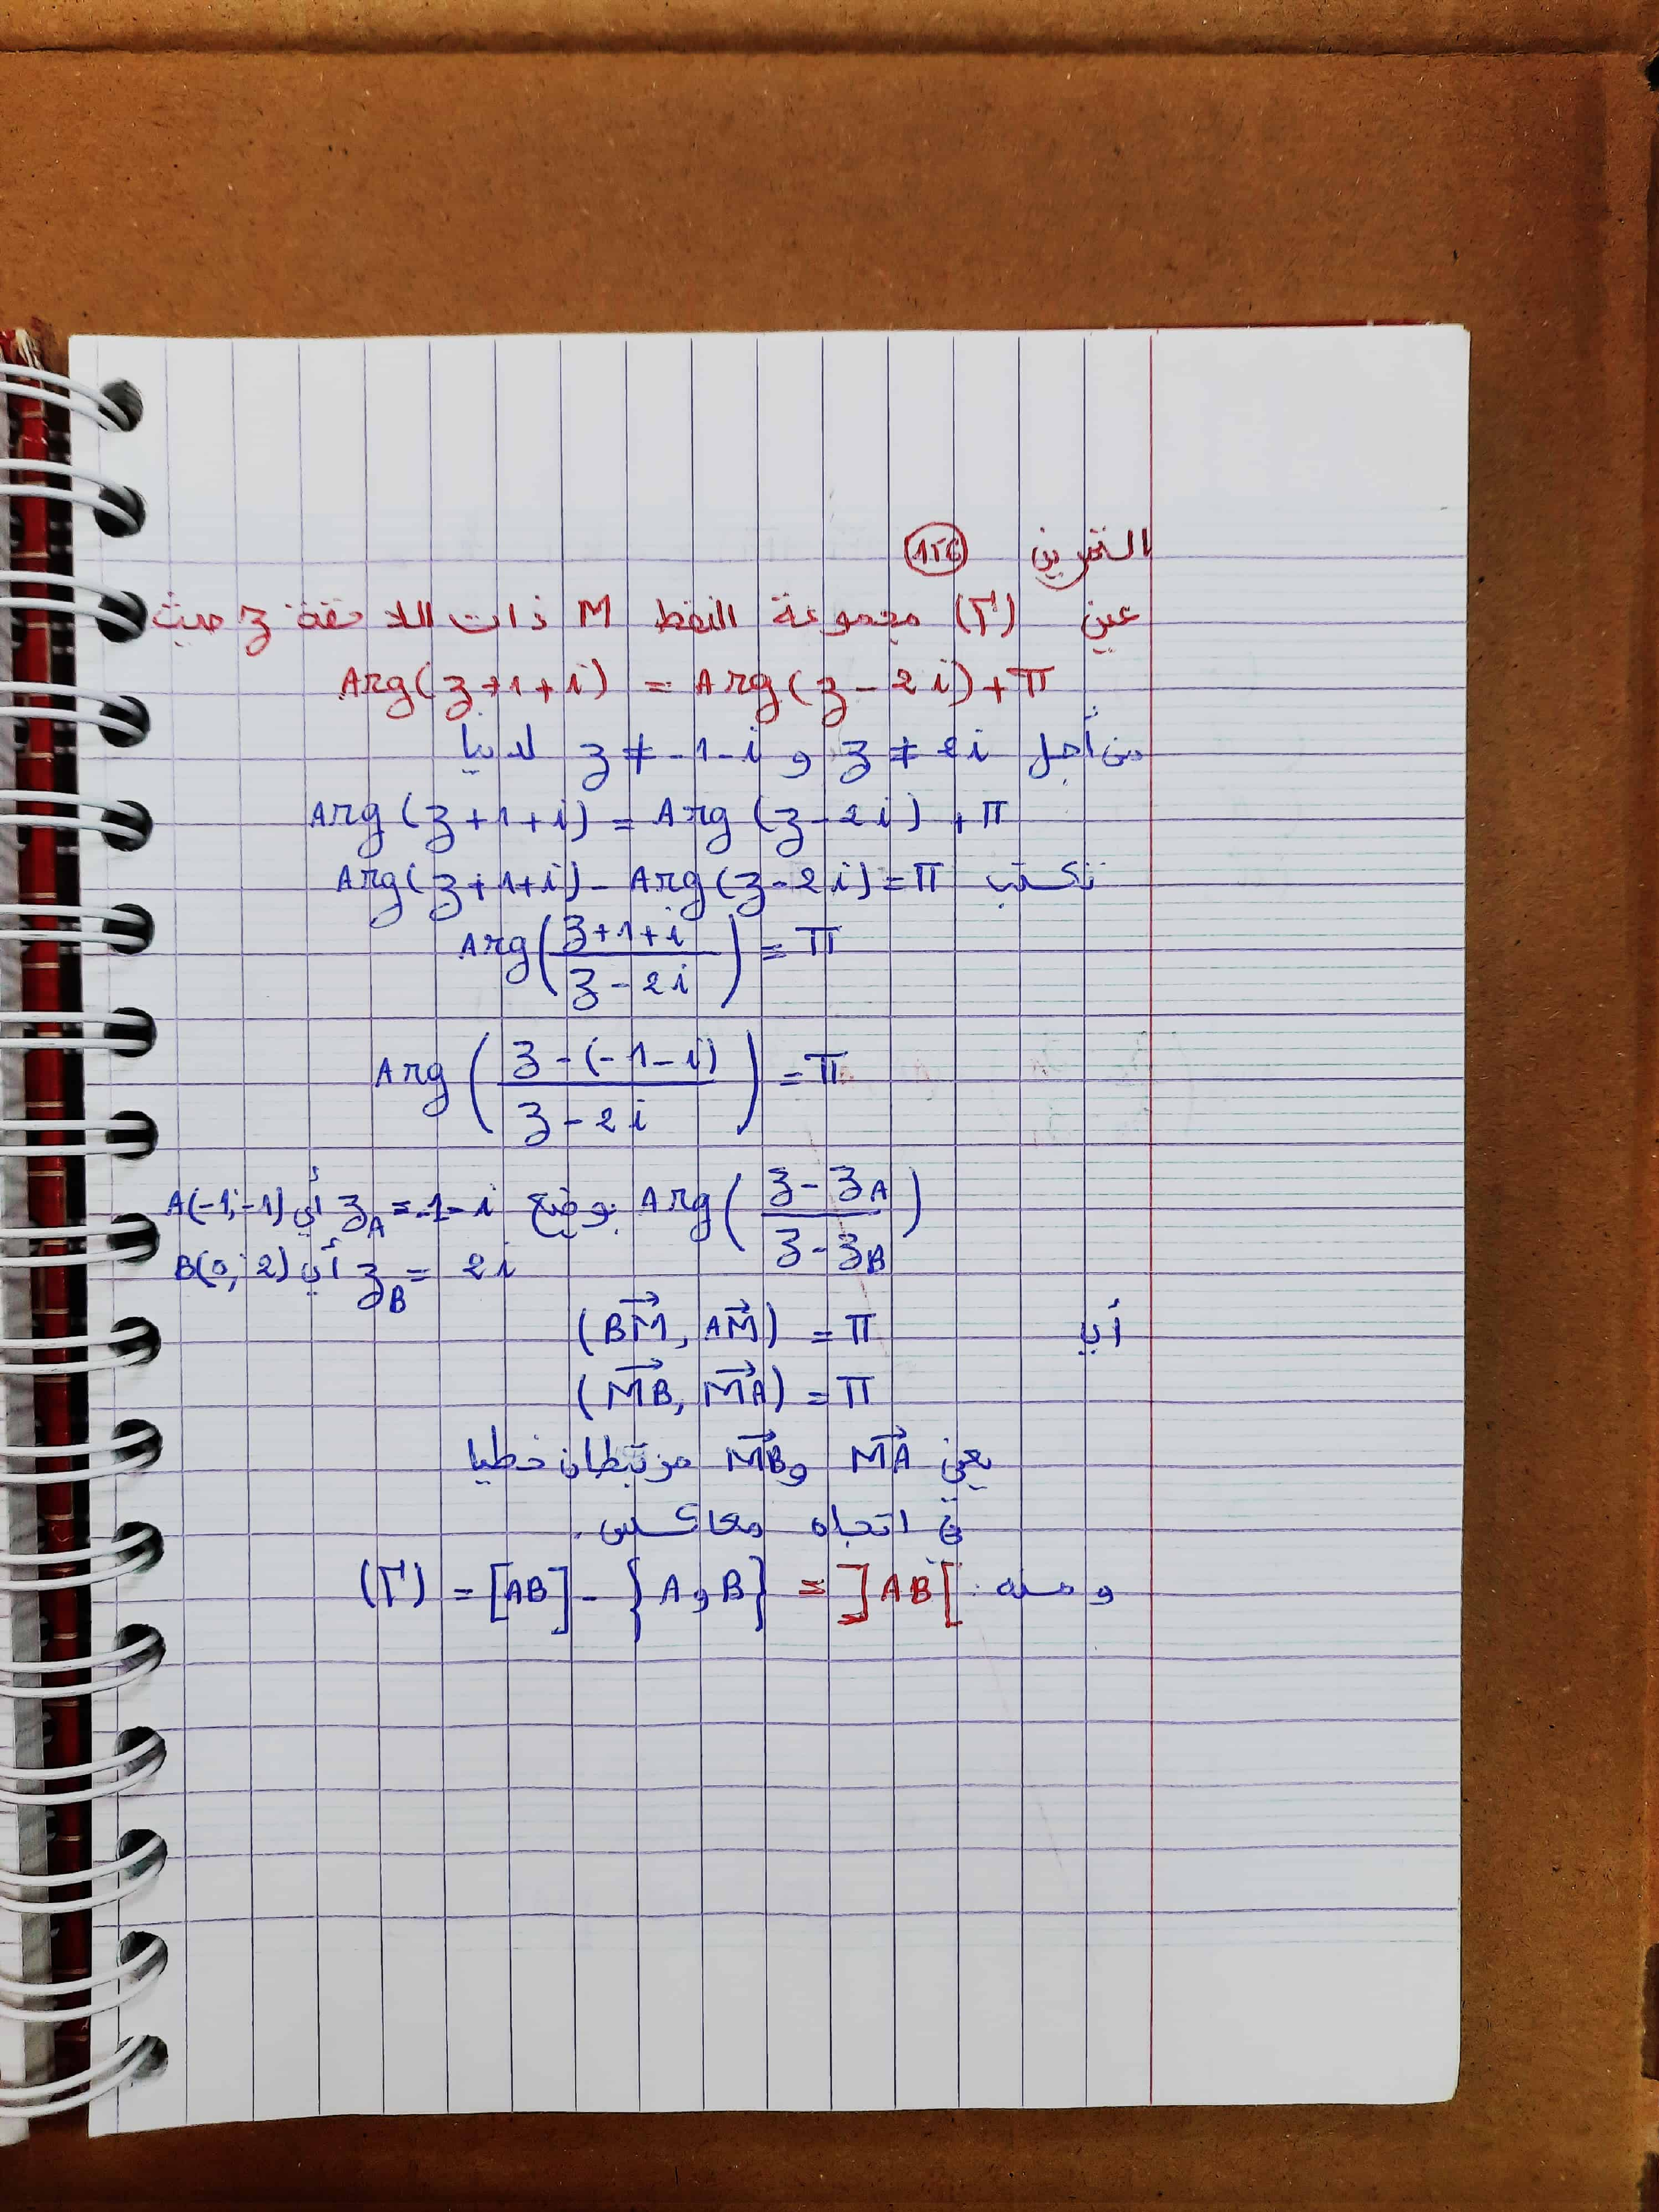 التمرين
عين (Γ) مجموعة النقط M ذات اللاحقة z حيث
Arg(z+1+i) = Arg(z-2i)+π
من أجل z ≠ 2i و z ≠ -1-i لدينا
Arg(z+1+i) = Arg(z-2i)+π
نكتب Arg(z+1+i) - Arg(z-2i) = π
Arg((z+1+i)/(z-2i)) = π
Arg((z-(-1-i))/(z-2i)) = π
Arg((z-z_A)/(z-z_B)) بوضع z_A = -1-i أي A(-1;-1)
z_B = 2i أي B(0; 2)
أي (BM→, AM→) = π
(MB→, MA→) = π
يعني MA→ و MB→ مرتبطان خطيا
في اتجاه معاكس.
ومنه: (Γ) = [AB] - {A و B} = ]AB[